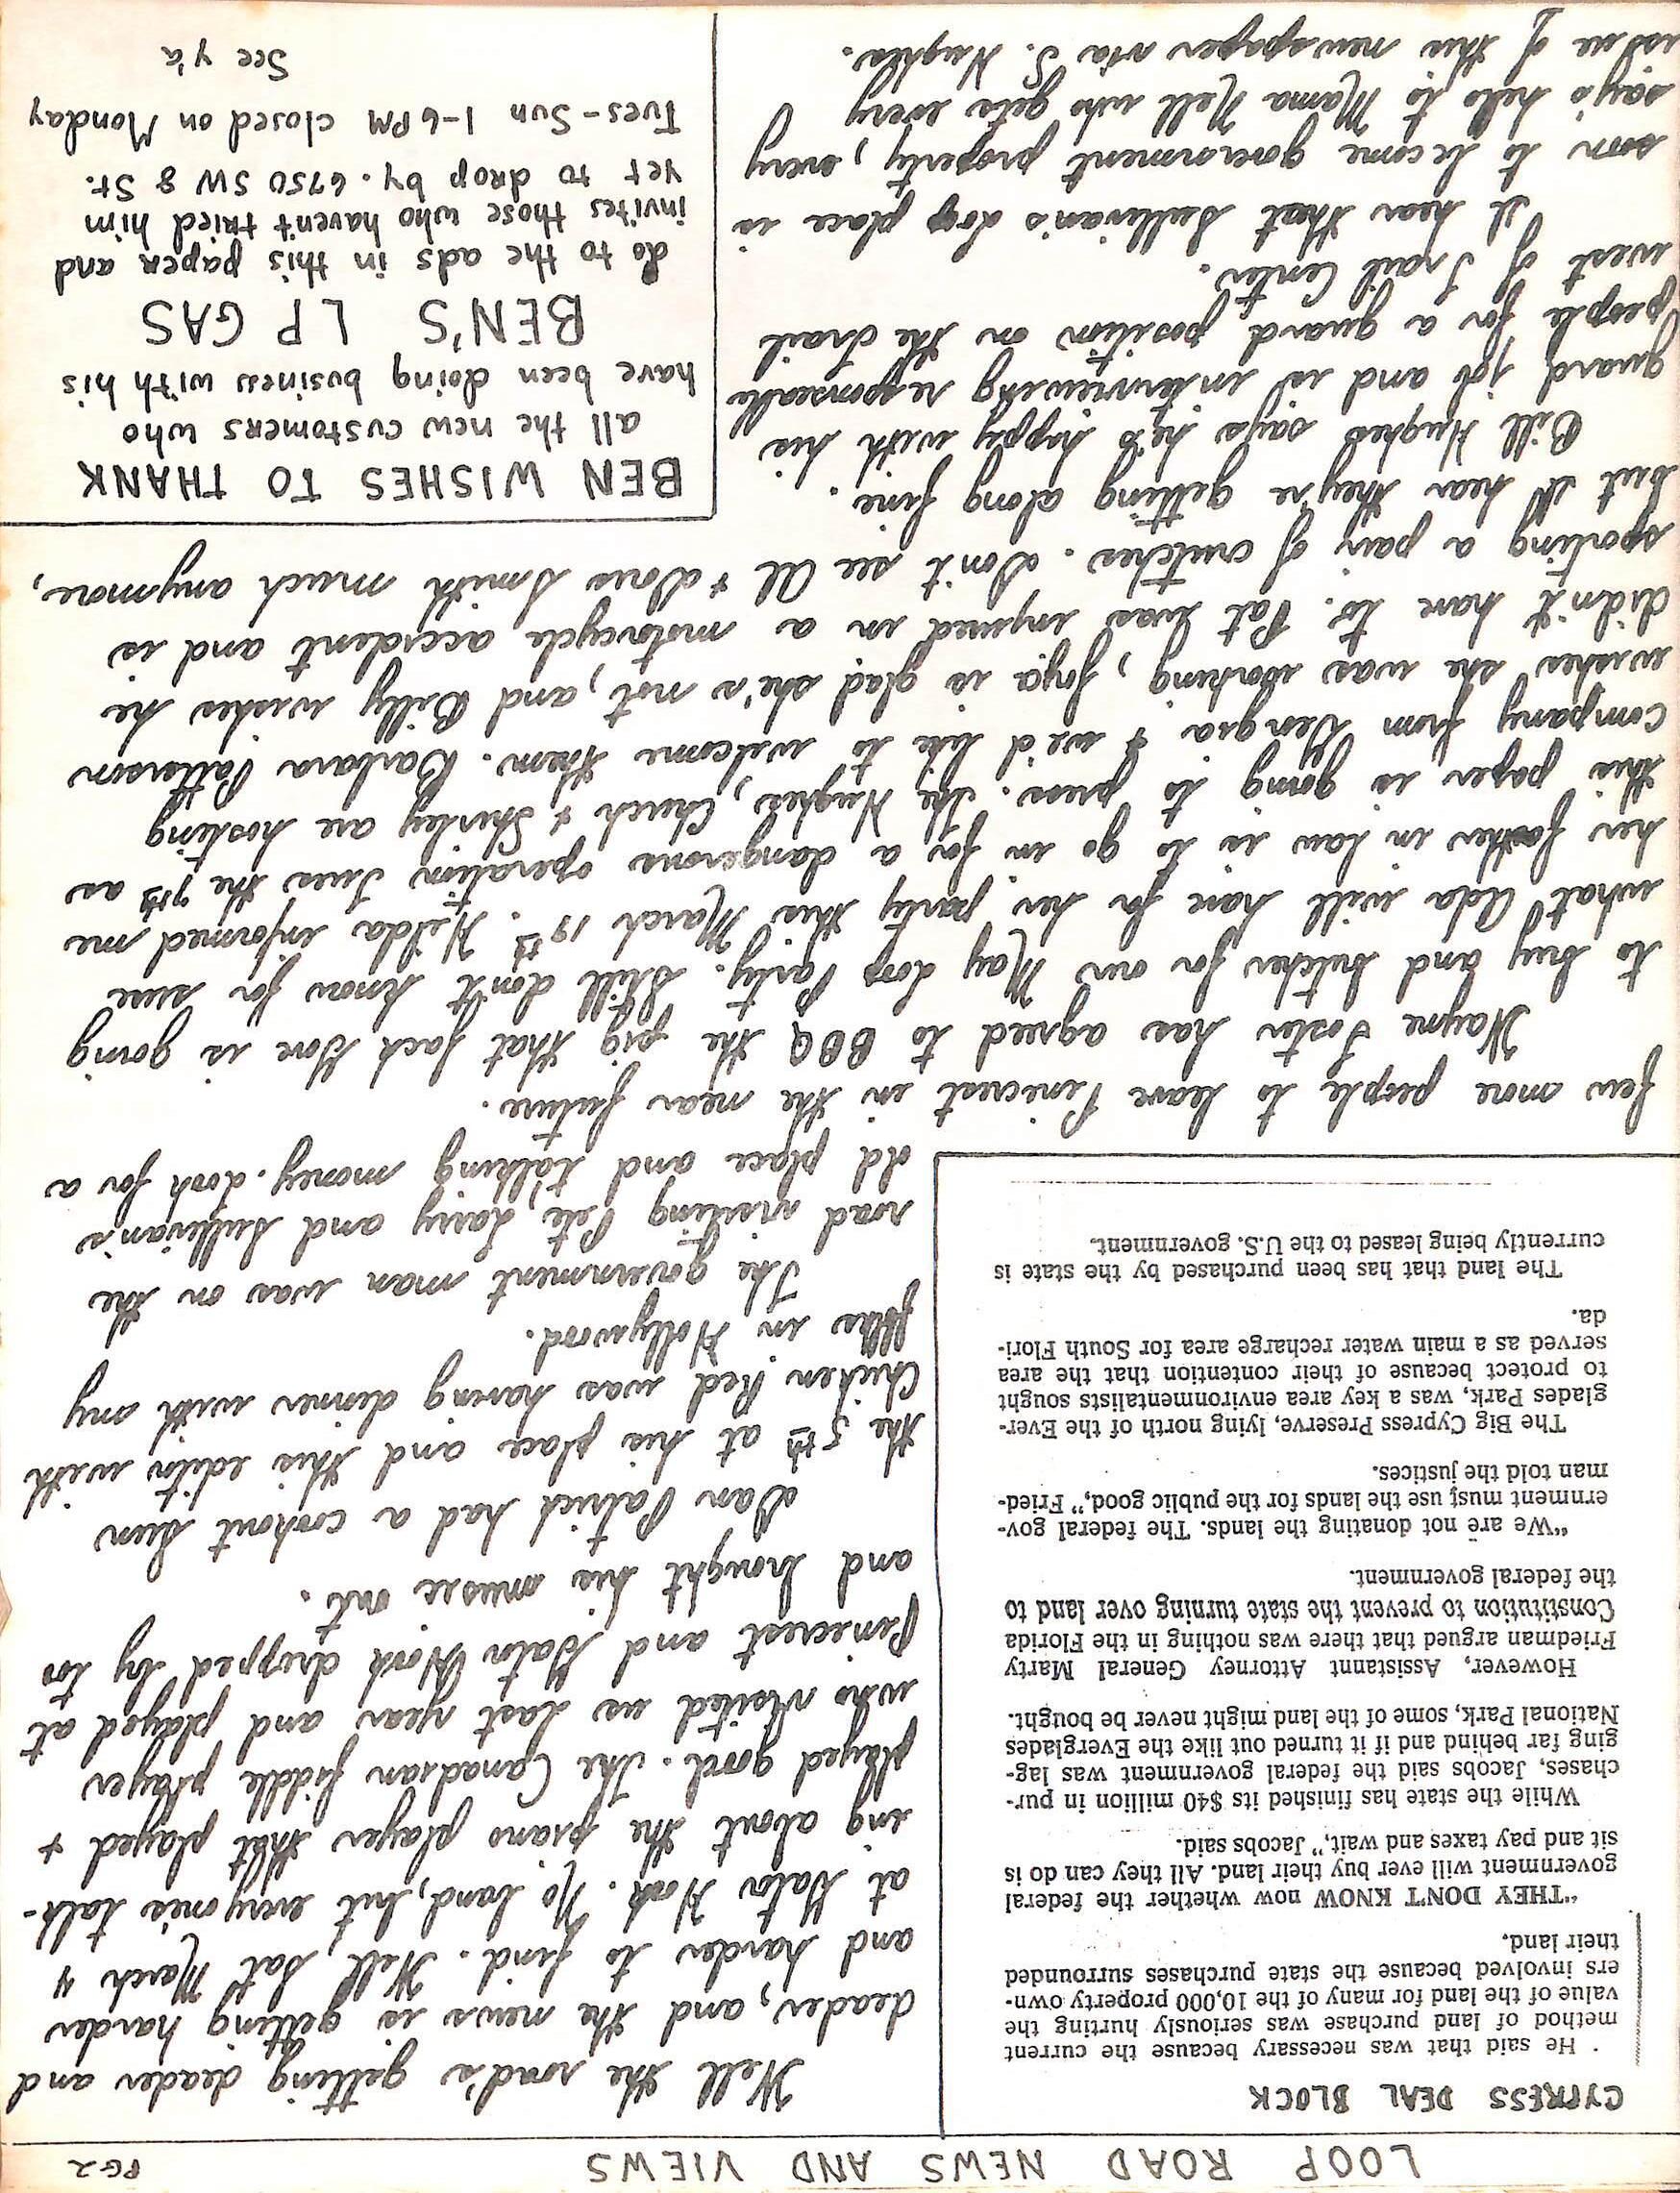 LOOP ROAD NEWS AND VIEWS PG-2
CYPRESS DEAL BLOCK
He said that was necessary because the current
method of land purchase was seriously hurting the
value of the land for many of the 10,000 property own-
ers involved because the state purchases surrounded
their land.
"THEY DON'T KNOW now whether the federal
government will ever buy their land. All they can do is
sit and pay taxes and wait," Jacobs said.
While the state has finished its $40 million in pur-
chases, Jacobs said the federal government was lag-
ging far behind and if it turned out like the Everglades
National Park, some of the land might never be bought.
However, Assistannt Attorney General Marty
Friedman argued that there was nothing in the Florida
Constitution to prevent the state turning over land to
the federal government.
"We are not donating the lands. The federal gov-
ernment must use the lands for the public good," Fried-
man told the justices.
The Big Cypress Preserve, lying north of the Ever-
glades Park, was a key area environmentalists sought
to protect because of their contention that the area
served as a main water recharge area for South Flori-
da.
The land that has been purchased by the state is
currently being leased to the U.S. government.
Well the road's getting deader and
deader, and the news is getting harder
and harder to find. Well, Sat March 4
at Gator Hook. No band, but everyone's talk-
ing about the piano player that played +
played good. The Canadian fiddle player
who visited us last year and played at
Pinecrest and Gator Hook dropped by too
and brought his music out.
Dan Patrick had a cookout Sun
the 5th at his place and this editor with
Chicken Red was having dinner with my
folks in Hollywood.
The government man was on the
road visiting Pete, Larry and Sullivan's
old place and talking money. Look for a
few more people to leave Pinecrest in the near future.
Wayne Foster has agreed to BBQ the pig that Jack Gore is going
to buy and butcher for our May Loop Party. Still don't know for sure
what Ada will have for her party this March 19th. Hilda informed me
her father in law is to go in for a dangerous operation Tues the 7th as
this paper is going to press. The Hughes, Chuck + Shirley are hosting
company from Georgia + we'd like to welcome them. Barbara Patterson
wishes she was working, Joya is glad she's not, and Billy wishes he
didn't have to. Pat was injured in a motorcycle accident and is
sporting a pair of crutches. Don't see Al + Dora Smith much anymore,
but I hear they're getting along fine.
Bill Hughes says he's happy with his
guard job and is interviewing responseable
people for a guard position on the Trail
west of Trail Center.
I hear that Sullivan's loop place is
soon to become government property, every
says helo to Mama Nell who gets every
issue of this newspaper via S. Hughes.
BEN WISHES TO THANK
all the new customers who
have been doing business with his
BEN'S LP GAS
do to the ads in this paper and
invites those who haven't tried him
yet to drop by. 6750 SW 8 St.
Tues-Sun 1-6 PM closed on Monday
See y'a